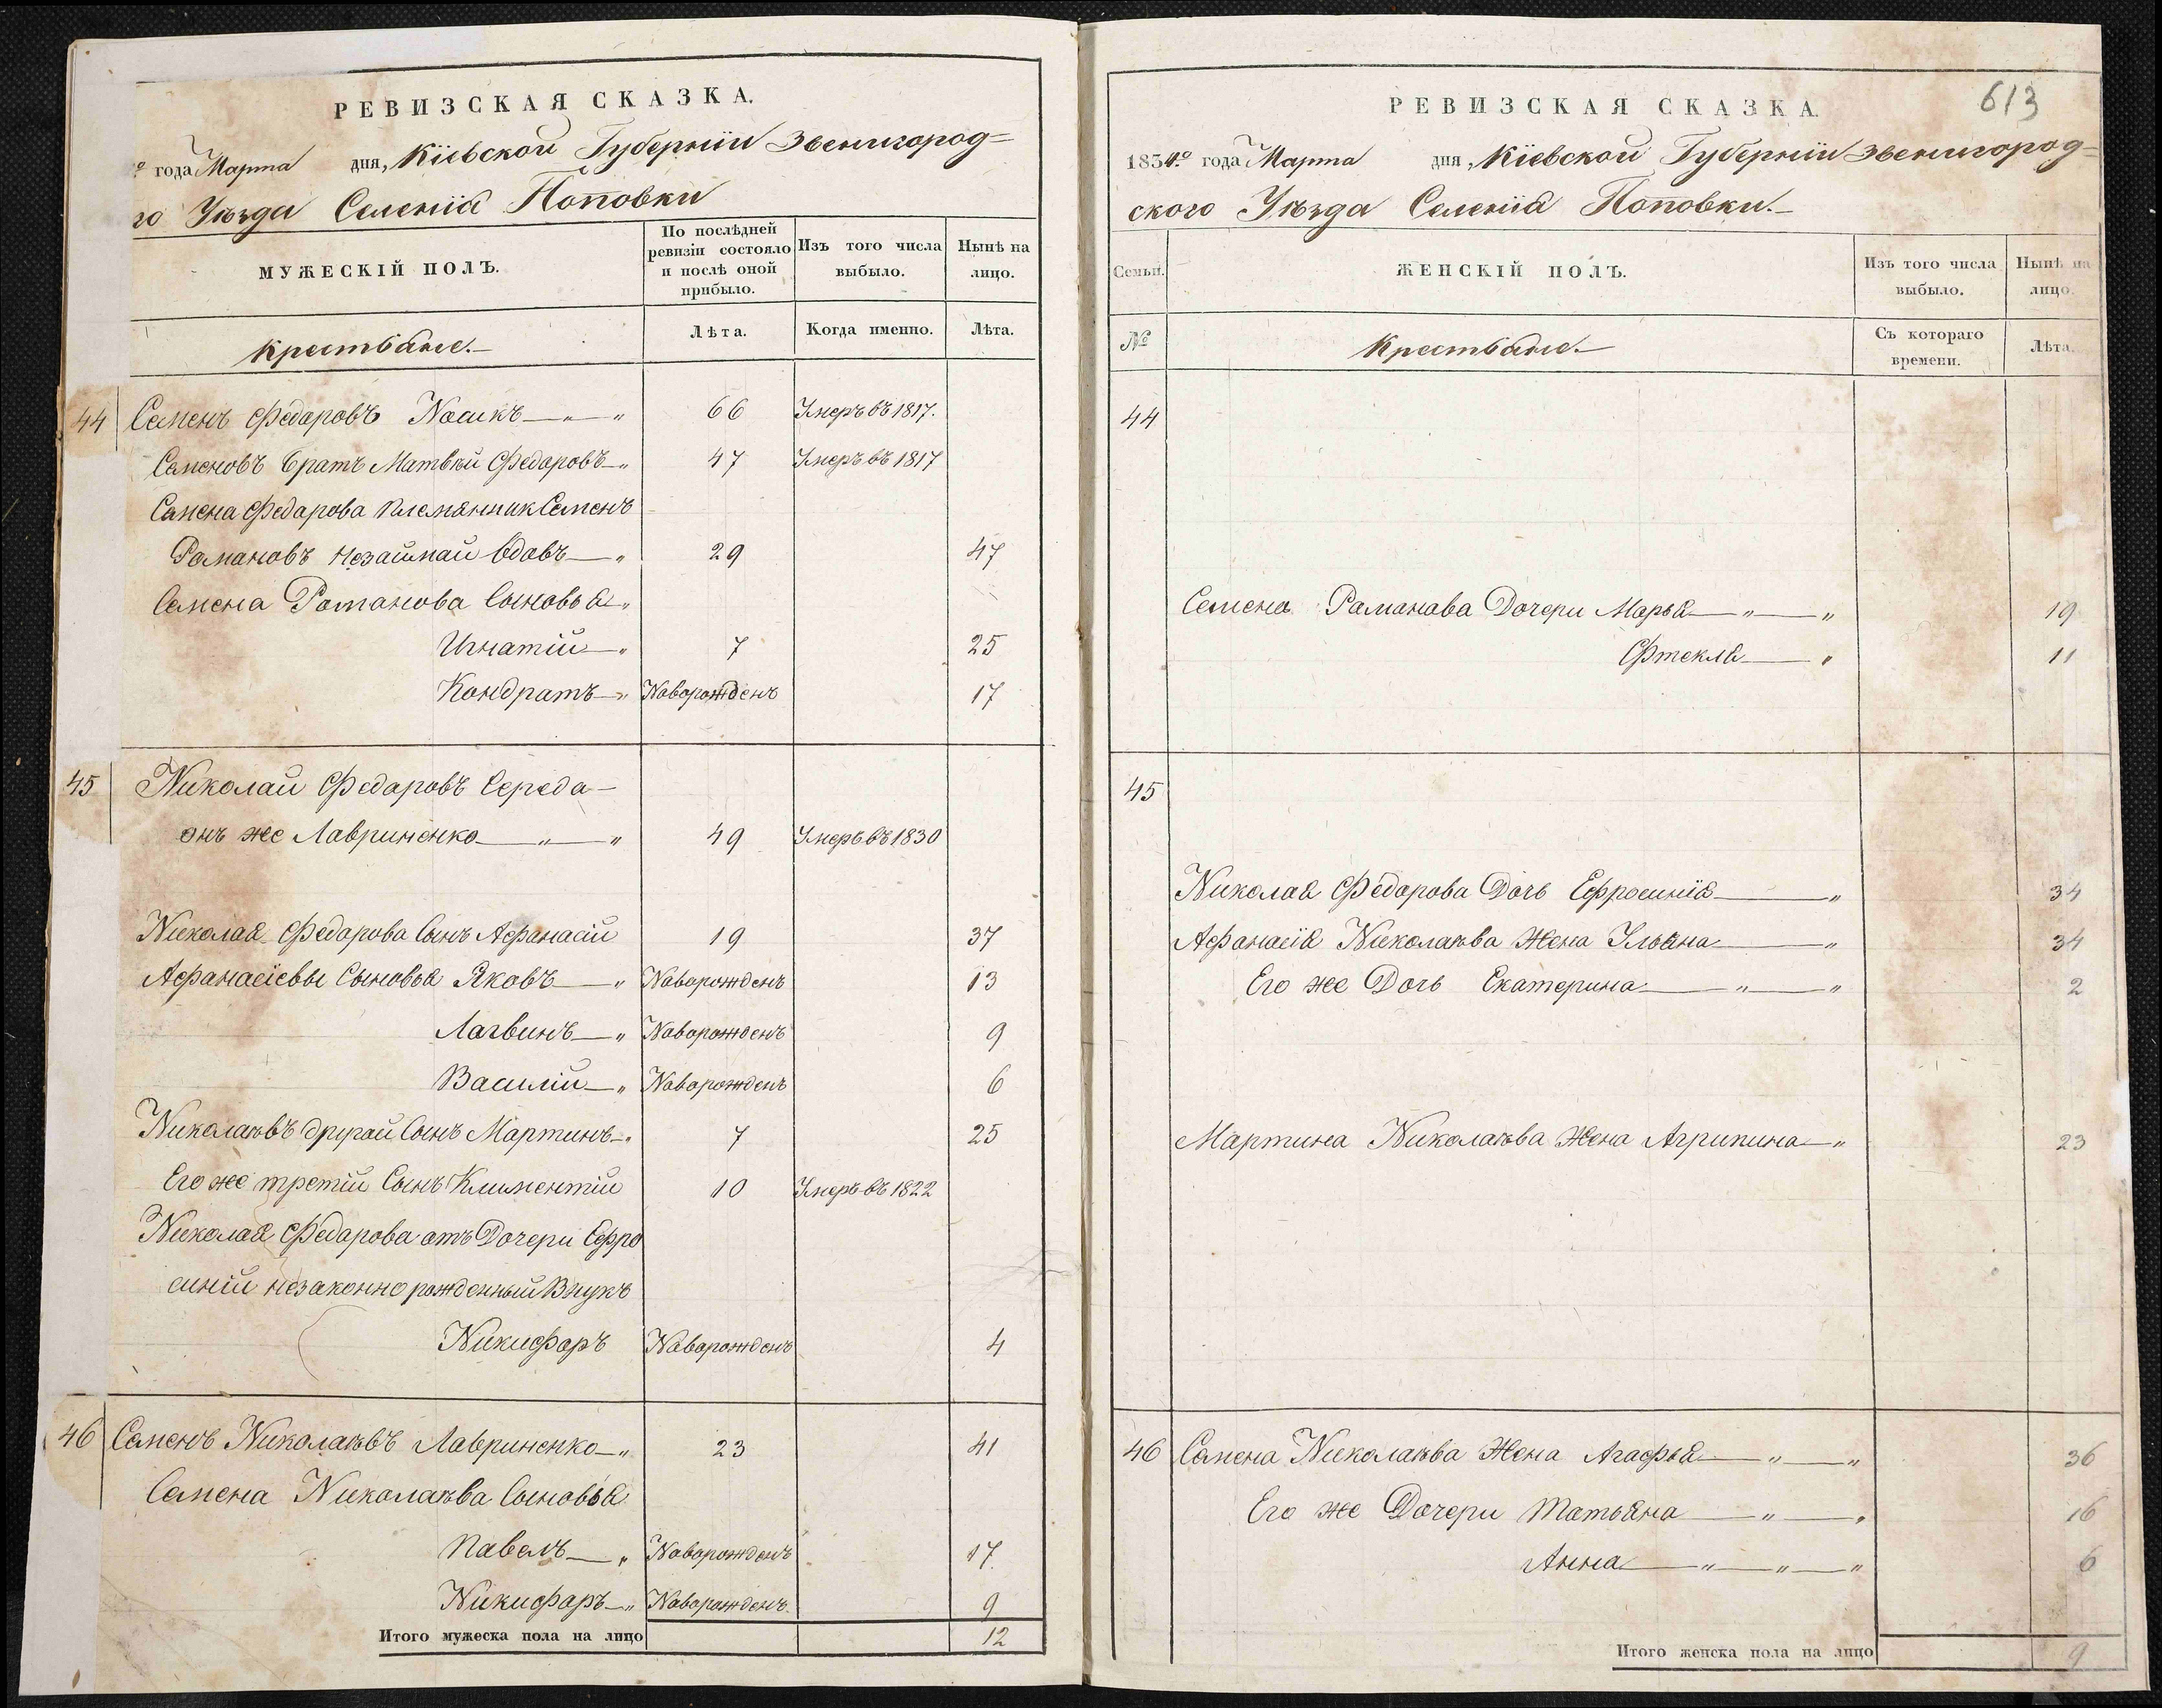 РЕВИЗСКАЯ СКАЗКА.
го года Марта дня, Кіевской Губерніи Звенигород=
го Уѣзда Селенія Поповки
МУЖЕСКІЙ ПОЛЪ.
По послѣдней ревизіи состояло и послѣ оной прибыло.
Изъ того числа выбыло.
Нынѣ на лицо.
Крестьяне.
Лѣта.
Когда именно.
Лѣта.
44 Семенъ Федоровъ Носикъ 66 Умеръ въ 1817.
Семеновъ братъ Матвѣй Федоровъ 47 Умеръ въ 1817
Семена Федорова племянник Семенъ
Романовъ Незаймай вдовъ 29 47
Семена Романова Сыновья
Игнатій 7 25
Кондратъ Новорожденъ 17
45 Николай Федоровъ Середа
онъ же Лавриненко 49 Умеръ въ 1830
Николая Федорова Сынъ Афанасій 19 37
Афанасіевы Сыновья Яковъ Новорожденъ 13
Логвинъ Новорожденъ 9
Василій Новорожденъ 6
Николаѣвъ другой Сынъ Мартинъ 7 25
Его же третій Сынъ Климентій 10 Умеръ въ 1822
Николая Федорова отъ Дочери Ефро
синіи незаконно рожденный Внукъ
Никифоръ Новорожденъ 4
46 Семенъ Николаѣвъ Лавриненко 23 41
Семена Николаѣва Сыновья
Павелъ Новорожденъ 17
Никифоръ Новорожденъ 9
Итого мужеска пола на лицо 12
613
РЕВИЗСКАЯ СКАЗКА.
1834го года Марта дня, Кіевской Губерніи Звенигород=
ского Уѣзда Селенія Поповки.
Семьи.
ЖЕНСКІЙ ПОЛЪ.
Изъ того числа выбыло.
Нынѣ на лицо.
№
Крестьяне.
Съ котораго времени.
Лѣта.
44
Семена Романова Дочери Марья 19
Фтекля 11
45
Николая Федорова Дочь Ефросинія 34
Афанасія Николаѣва Жена Ульяна 34
Его же Дочь Екатерина 2
Мартина Николаѣва Жена Агрипина 23
46 Семена Николаѣва Жена Агафья 36
Его же Дочери Татьяна 16
Анна 6
Итого женска пола на лицо 9